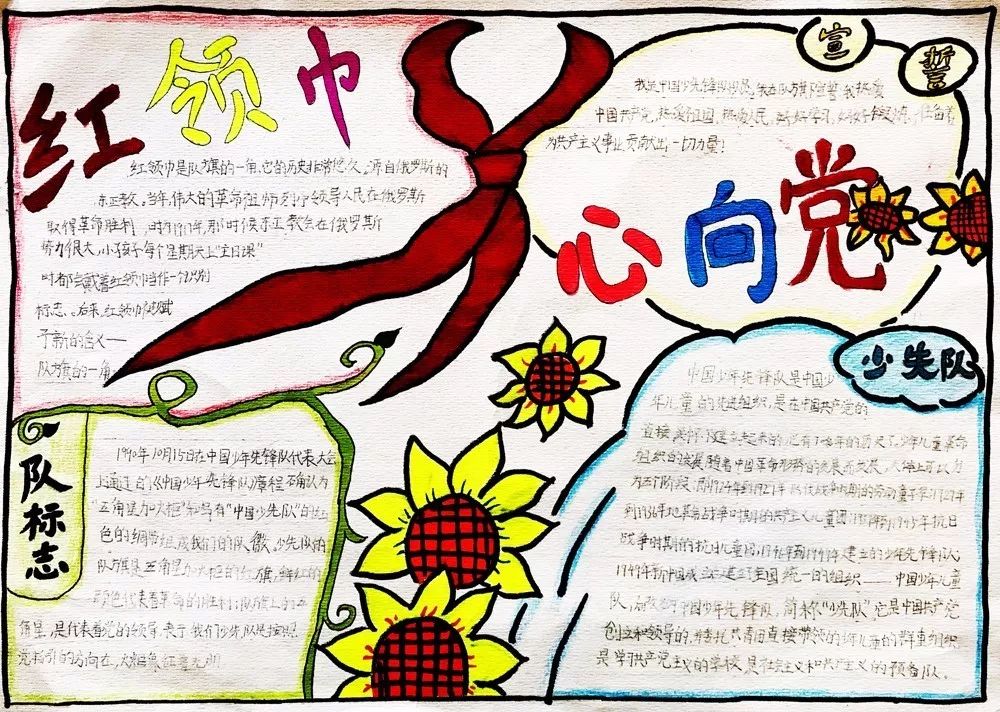 红领巾
红领巾是队旗的一角,它的历史非常悠久。源自俄罗斯的
东正教。当年,伟大的革命祖师列宁领导人民在俄罗斯
取得革命胜利,时为1917年,那时候东正教会在俄罗斯
势力很大,小孩子每个星期天上"主日课"
时都会戴着红领巾当作一个识别
标志。后来,红领巾被赋
予新的含义——
队旗的一角。
宣誓
我是中国少年先锋队队员,我在队旗下宣誓:我热爱
中国共产党,热爱祖国,热爱人民,好好学习,
为共产主义事业贡献出一切力量!
心向党
队标志
1990年10月15日在中国少年先锋队代表大会
上通过的《中国少年先锋队章程》确认为
"五角星加火炬"和写有"中国少先队"的红
色的绸带组成我们的队徽。少先队的
队旗是五角星加火炬的红旗,鲜红的
颜色代表着革命的胜利;队旗上的五
角星,是代表着党的领导,表示我们少先队是按照
党指引的方向在,火炬象征着光明
少先队
中国少年先锋队是中国少
年儿童的先进组织,是在中国共产党的
直接关怀下建立起来的,
为三个阶段:即1924年到1927年
战争时期的抗日儿童团;1946年到1949年建立的少年先锋队;
1949年新中国成立,建立全国统一的组织——中国少年儿童
队,后改为中国少年先锋队,简称"少先队"。它是中国共产党
创立和领导的,并委托共青团直接带领的少年儿童的群众组织
是学习共产主义的学校,是社会主义和共产主义的预备队。